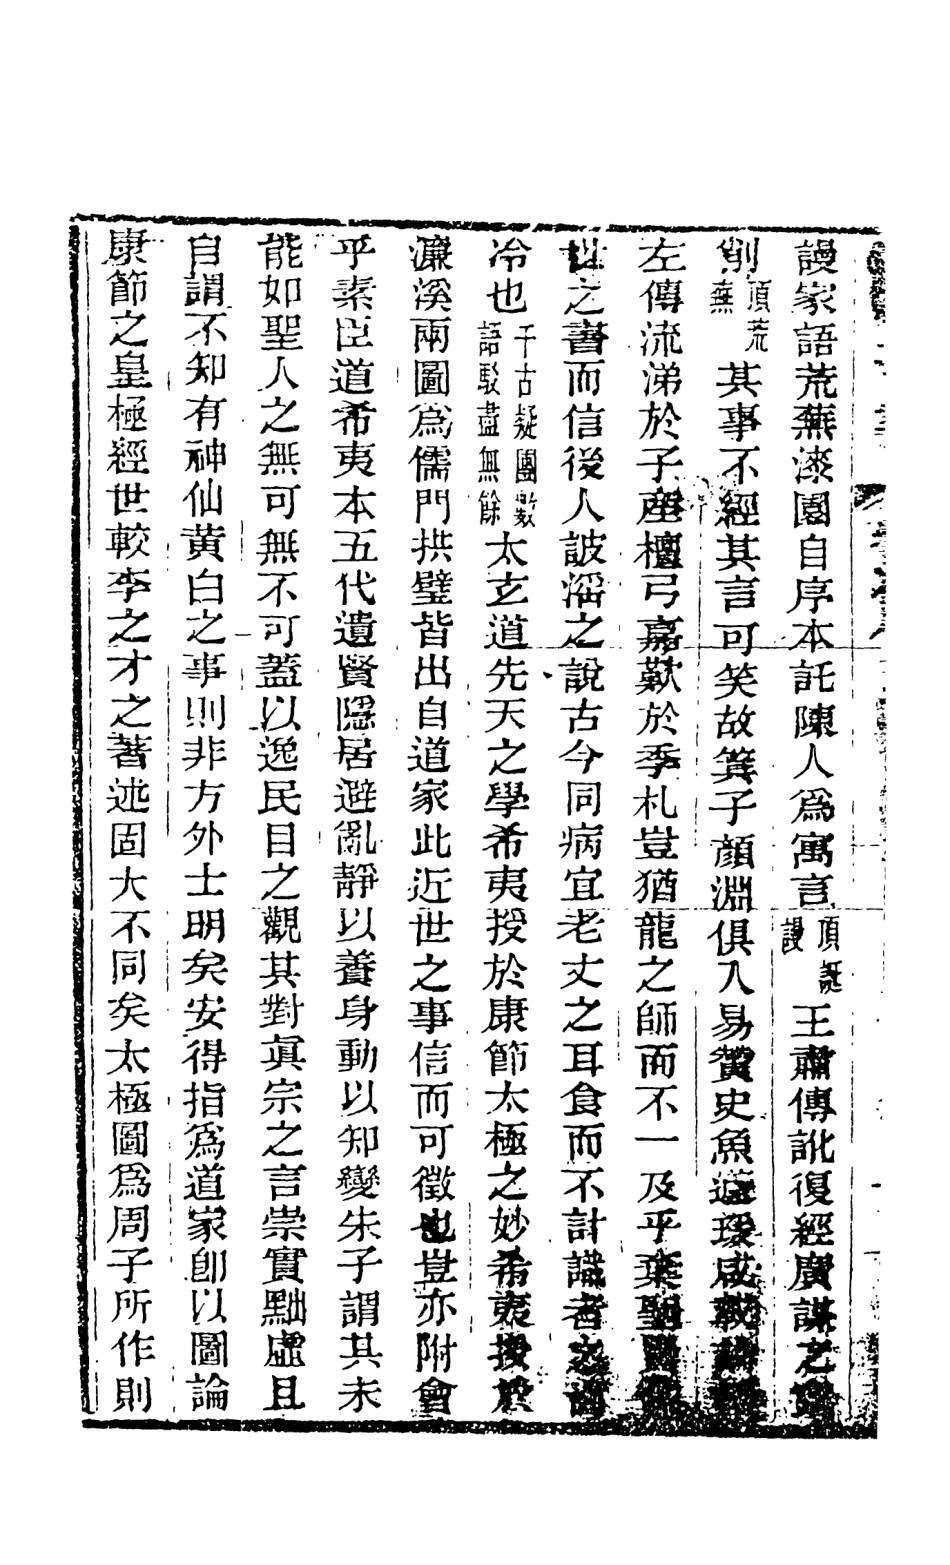 謾家語荒蕪漆園自序本託陳人爲寓言頂誕謾王肅傳訛復經廣謀之
削頂荒蕪其事不經其言可笑故箕子顏淵俱入易贊史魚蘧瑗咸載
左傳流涕於子產檀弓嘉歎於季札豈猶龍之師而不一及乎棄聖
世之書而信後人詖滛之說古今同病宜老丈之耳食而不計識者之
冷也千古疑團數語駁盡無餘太玄道先天之學希夷授於康節太極之妙希夷授於
濂溪兩圖爲儒門拱璧皆出自道家此近世之事信而可徵也豈亦附會
乎素臣道希夷本五代遺賢隱居避亂靜以養身動以知變朱子謂其未
能如聖人之無可無不可蓋以逸民目之觀其對眞宗之言崇實黜虛且
自謂不知有神仙黃白之事則非方外士明矣安得指爲道家卽以圖論
康節之皇極經世較李之才之著述固大不同矣太極圖爲周子所作則